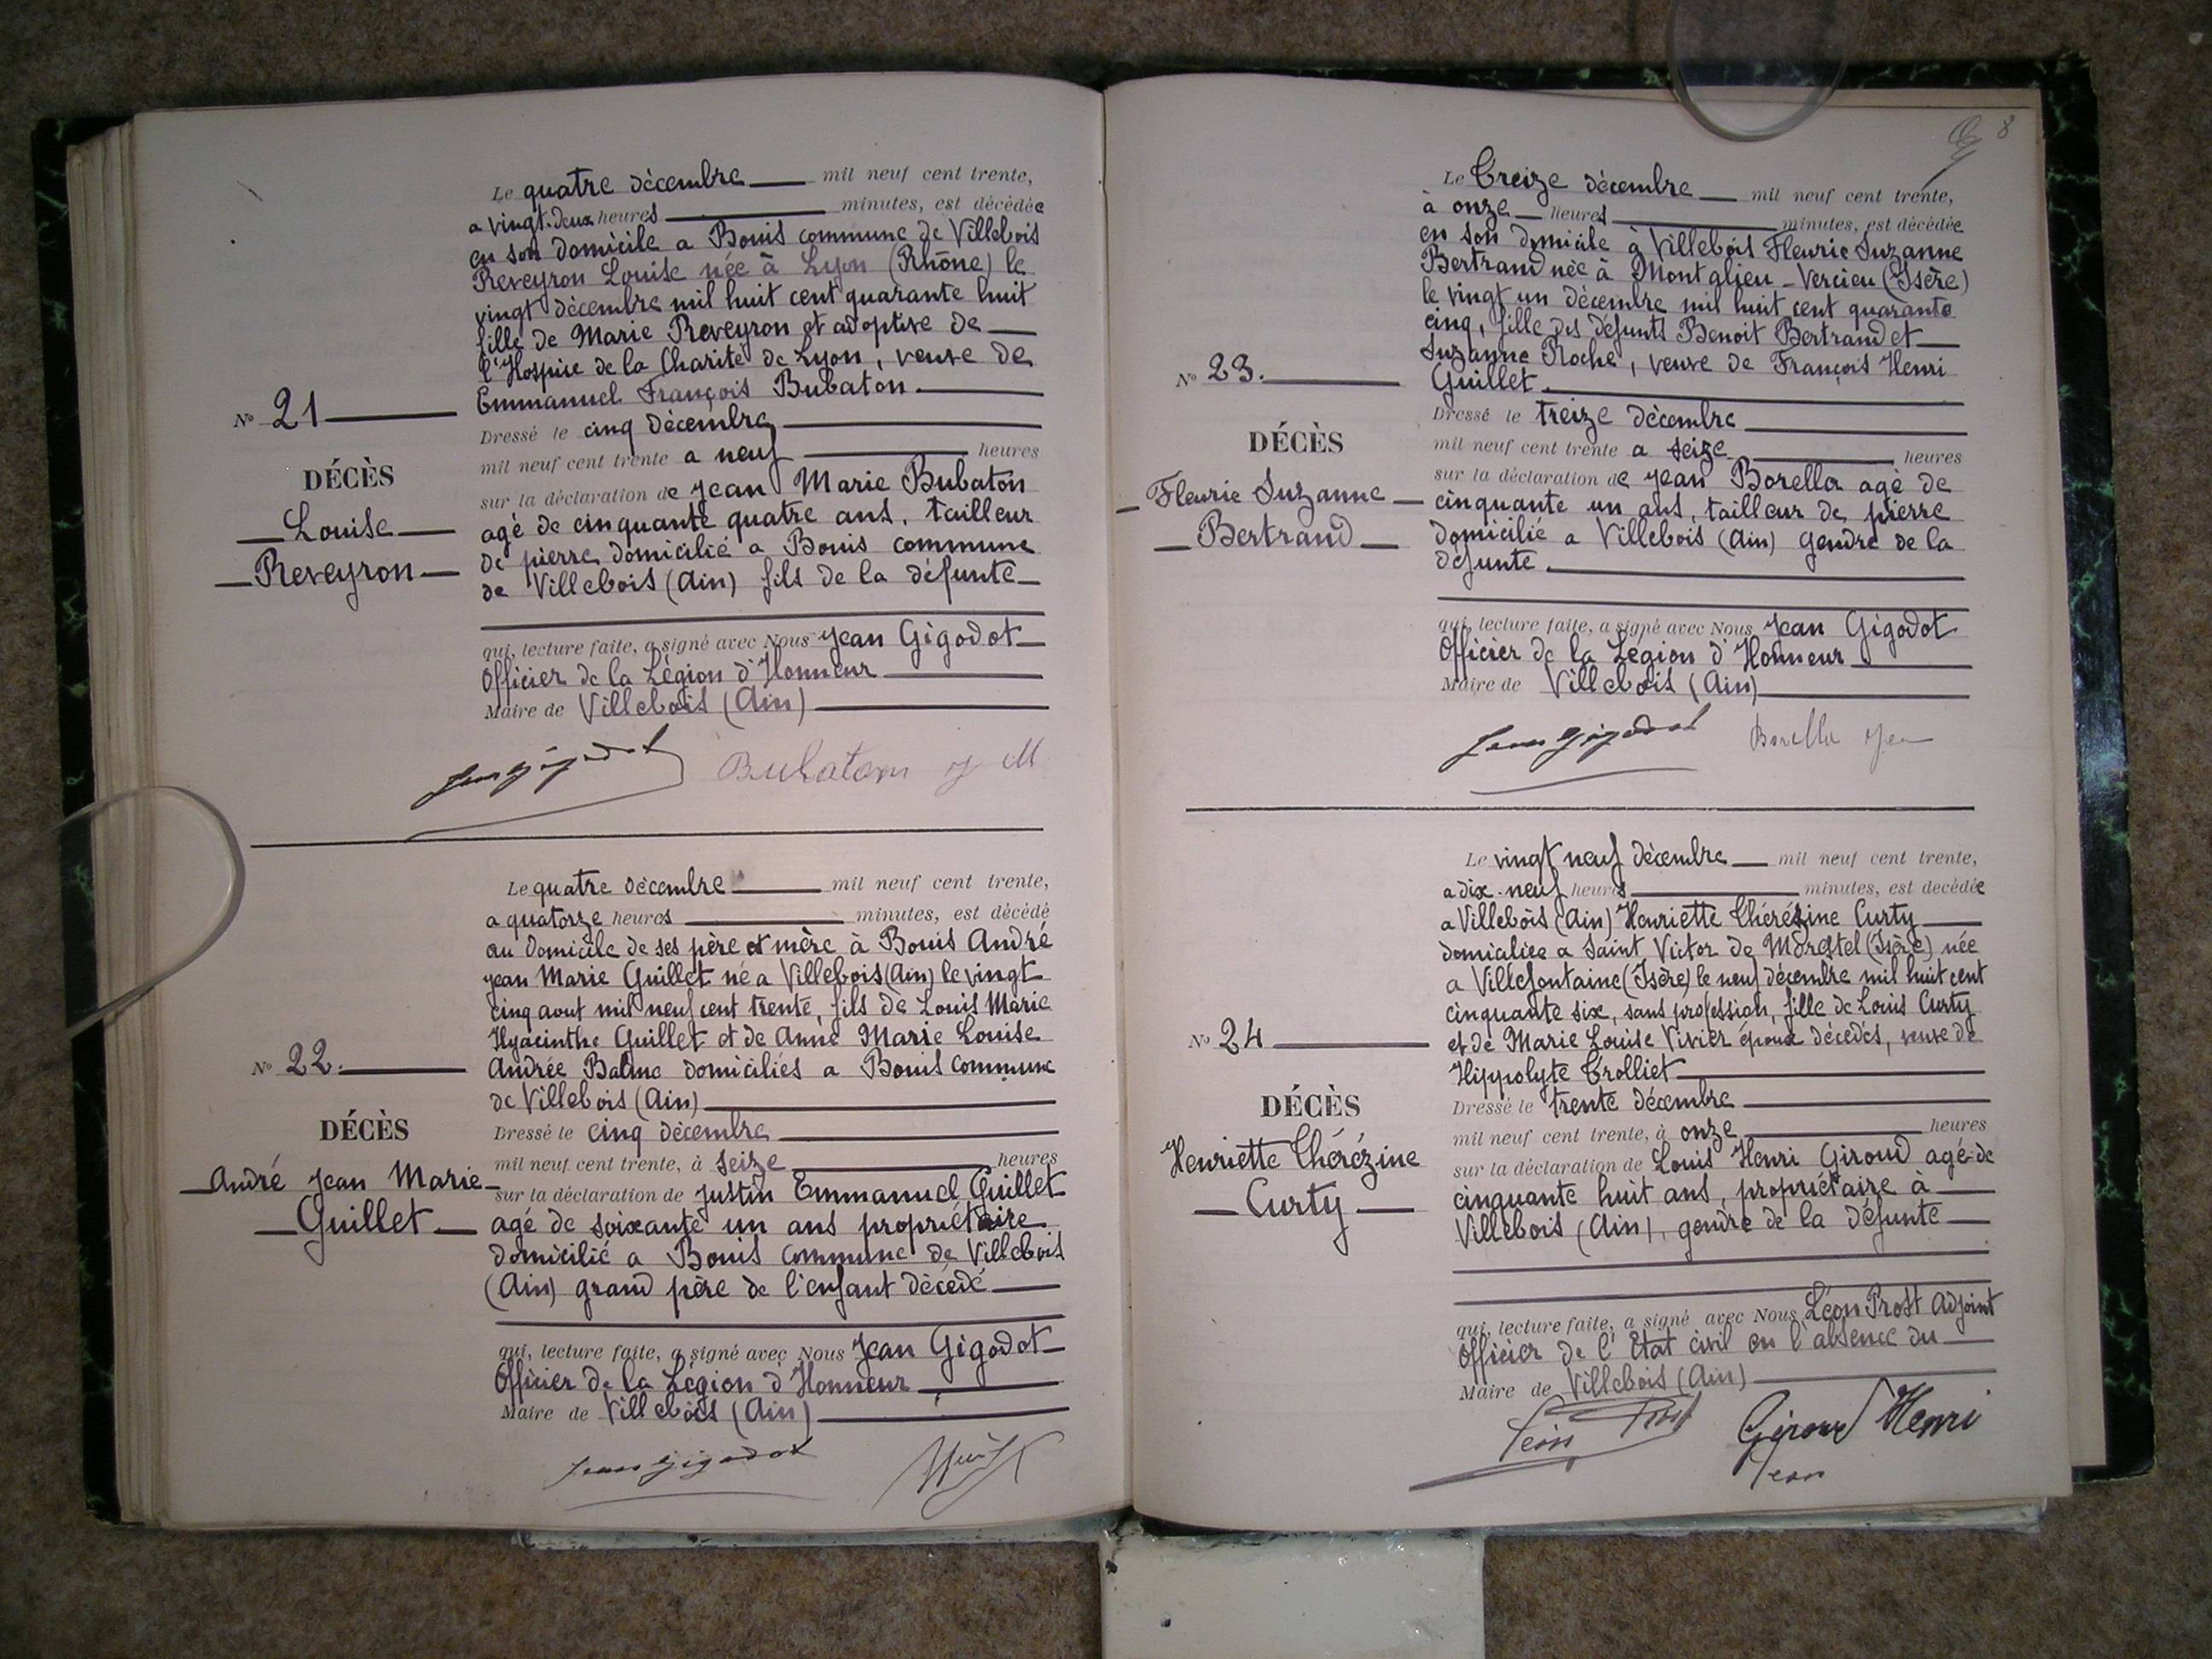 Le quatre décembre mil neuf cent trente,
a vingt-deux heures minutes, est décédée
en son domicile a Bouis commune de Villebois
Reveyron Louise née à Lyon (Rhône) le
vingt décembre mil huit cent quarante huit
fille de Marie Reveyron et adoptive de
l'Hospice de la Charité de Lyon, veuve de
Emmanuel François Bubaton.
N° 21
DÉCÈS
Louise
Reveyron
Dressé le cinq décembre
mil neuf cent trente a neuf heures
sur la déclaration de Jean Marie Bubaton
agé de cinquante quatre ans, tailleur
de pierre domicilié a Bouis commune
de Villebois (Ain) fils de la défunte
qui, lecture faite, a signé avec Nous Jean Gigodot
Officier de la Légion d'Honneur
Maire de Villebois (Ain)
Jean Gigodot Bubaton J M
Le quatre décembre mil neuf cent trente,
a quatorze heures minutes, est décédé
au domicile de ses père et mère à Bouis André
Jean Marie Guillet né a Villebois (Ain) le vingt
cinq aout mil neuf cent trente, fils de Louis Marie
Hyacinthe Guillet et de Anne Marie Louise
Andrée domiciliés a Bouis commune
de Villebois (Ain)
N° 22.
DÉCÈS
André Jean Marie
Guillet
Dressé le cinq décembre
mil neuf cent trente, à seize heures
sur la déclaration de Justin Emmanuel Guillet
agé de soixante un ans propriétaire
domicilié a Bouis commune de Villebois
(Ain) grand père de l'enfant décédé
qui, lecture faite, a signé avec Nous Jean Gigodot
Officier de la Légion d'Honneur
Maire de Villebois (Ain)
Jean Gigodot
8
Le Treize décembre mil neuf cent trente,
à onze heures minutes, est décédée
en son domicile à Villebois Fleurie Suzanne
Bertrand née à Montalieu-Vercieu (Isère)
le vingt un décembre mil huit cent quarante
cinq, fille des défunts Benoit Bertrand et
Suzanne Roche, veuve de François Henri
Guillet.
N° 23.
DÉCÈS
Fleurie Suzanne
Bertrand
Dressé le treize décembre
mil neuf cent trente a seize heures
sur la déclaration de Jean Borella agé de
cinquante un ans, tailleur de pierre
domicilié a Villebois (Ain) gendre de la
défunte.
qui, lecture faite, a signé avec Nous Jean Gigodot
Officier de la Légion d'Honneur
Maire de Villebois (Ain)
Jean Gigodot Borella Jean
Le vingt neuf décembre mil neuf cent trente,
a dix-neuf heures minutes, est decédée
a Villebois (Ain) Henriette Thérézine Curty
domiciliée a Saint Victor de Morestel (Isère) née
a Villefontaine (Isère) le neuf décembre mil huit cent
cinquante six, sans profession, fille de Louis Curty
et de Marie Louise Vivier époux décédés, veuve de
Hippolyte Trolliet
N° 24
DÉCÈS
Henriette Thérézine
Curty
Dressé le trente décembre
mil neuf cent trente, à onze heures
sur la déclaration de Louis Henri Giroud agé de
cinquante huit ans, propriétaire à
Villebois (Ain), gendre de la défunte
qui, lecture faite, a signé avec Nous Léon Prost Adjoint
Officier de l'Etat civil en l'absence du
Maire de Villebois (Ain)
Léon Prost Giroud Henri
Jean